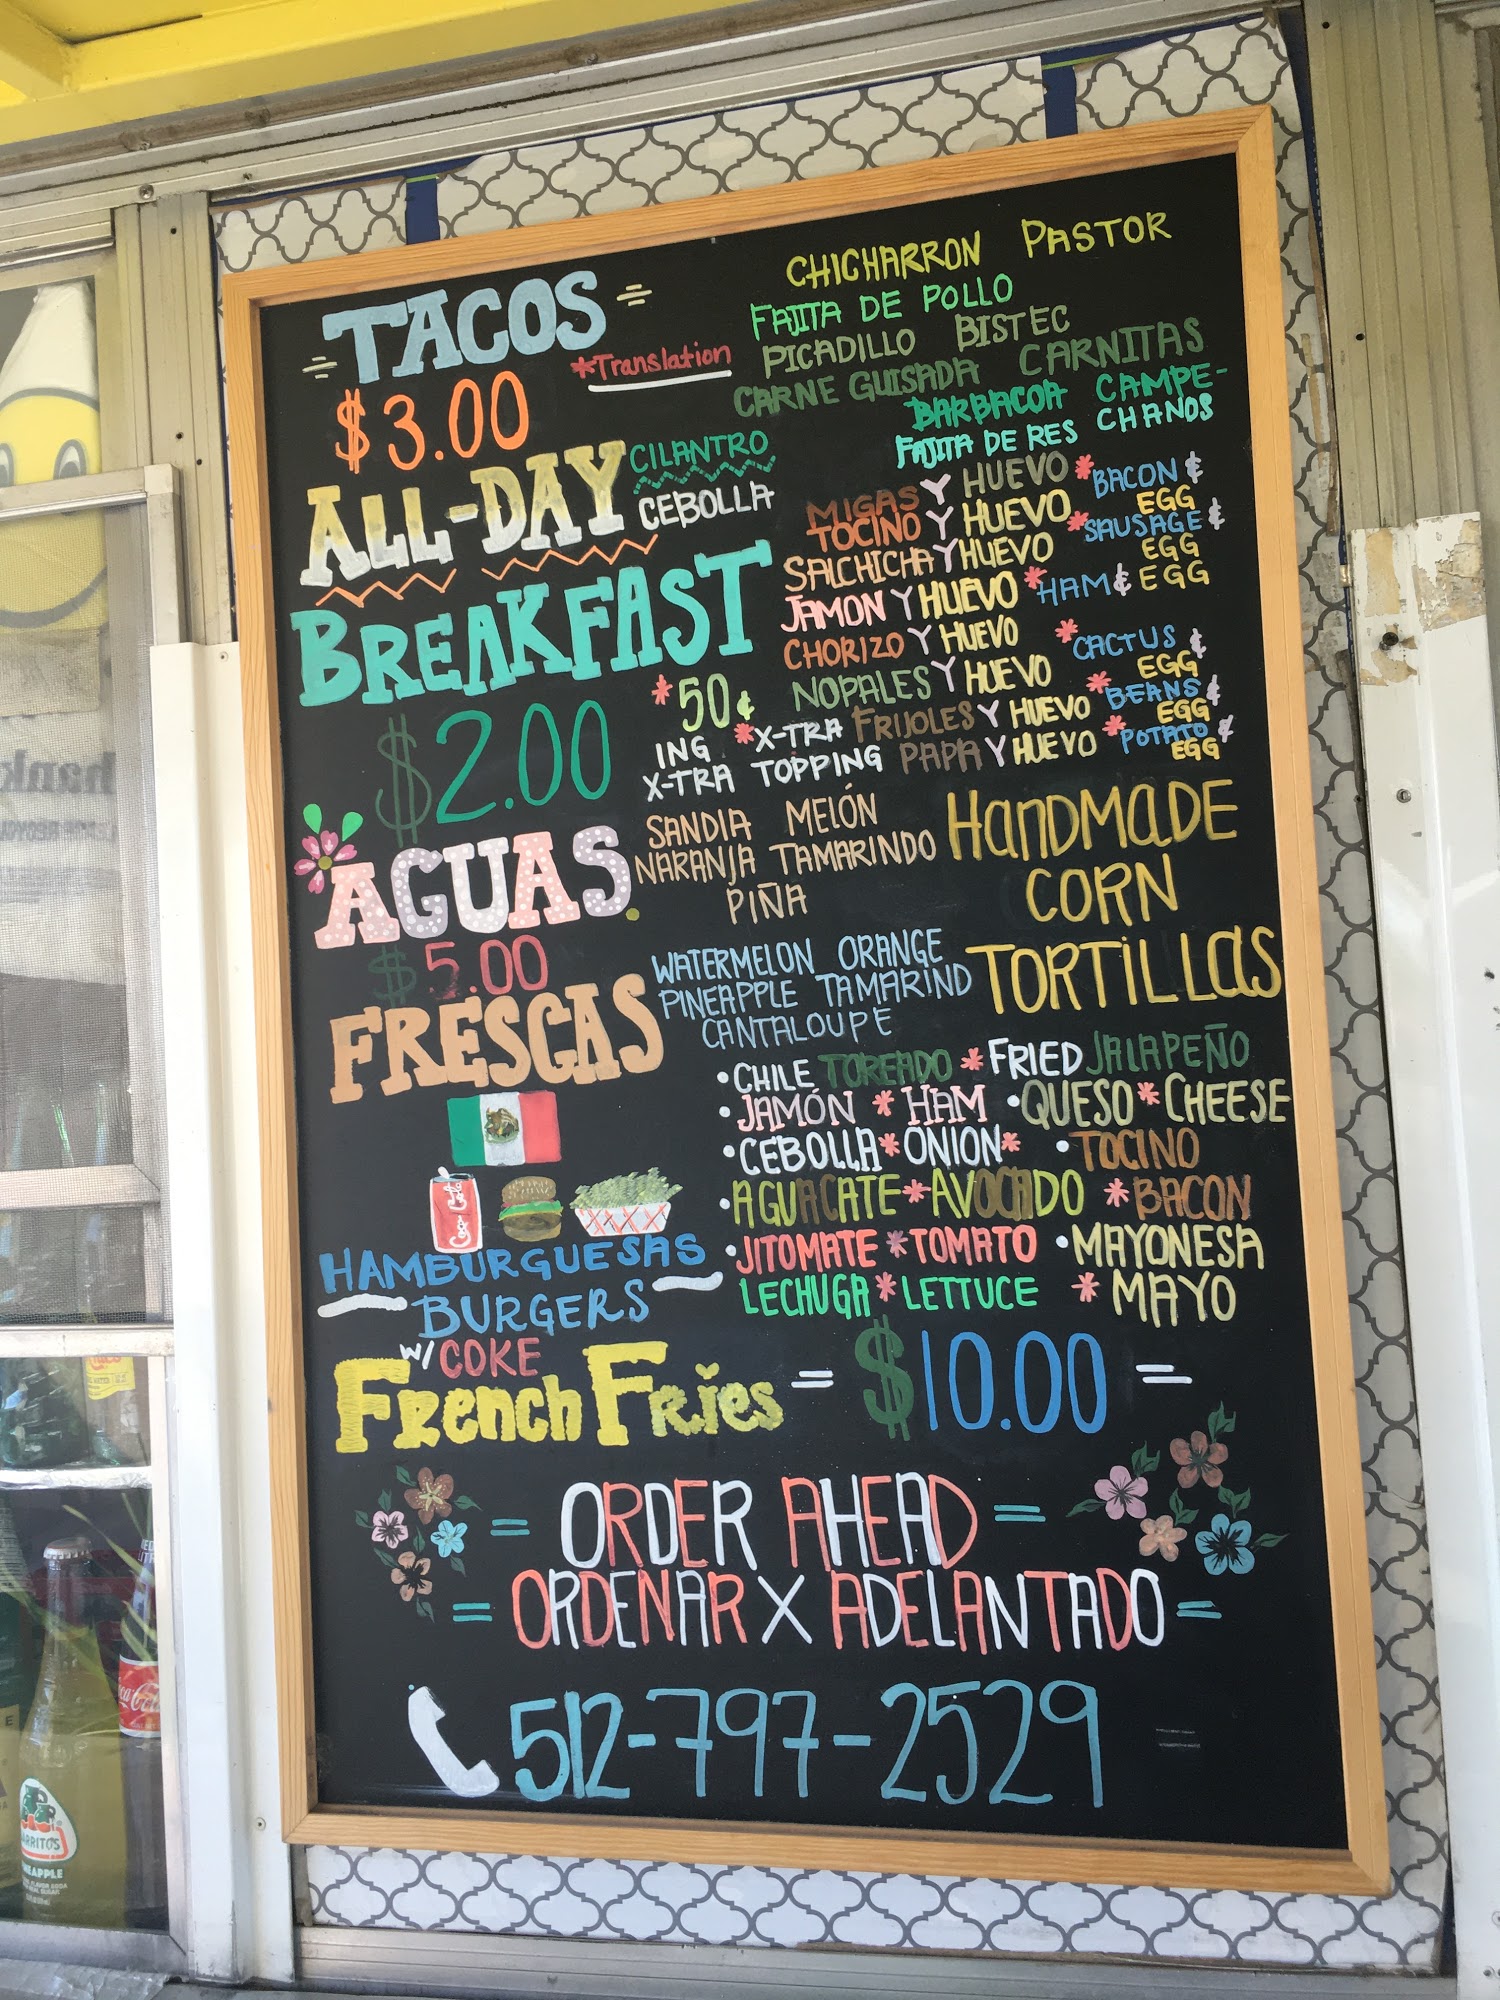 TACOS
$3.00
*Translation
CHICHARRON PASTOR
FAJITA DE POLLO
PICADILLO BISTEC
CARNE GUISADA CARNITAS
BARBACOA CAMPE-
FAJITA DE RES CHANOS
ALL-DAY
CILANTRO
CEBOLLA
BREAKFAST
$2.00
MIGAS Y HUEVO *BACON &
TOCINO Y HUEVO EGG
SALCHICHA Y HUEVO *SAUSAGE &
EGG
JAMON Y HUEVO *HAM & EGG
CHORIZO Y HUEVO
NOPALES Y HUEVO *CACTUS &
EGG
FRIJOLES Y HUEVO *BEANS &
EGG
PAPA Y HUEVO *POTATO &
EGG
*50¢
ING *X-TRA
X-TRA TOPPING
AGUAS
$5.00
FRESCAS
SANDIA MELÓN
NARANJA TAMARINDO
PIÑA
WATERMELON ORANGE
PINEAPPLE TAMARIND
CANTALOUPE
HANDMADE
CORN
TORTILLAS
•CHILE TOREADO *FRIED JALAPEÑO
•JAMÓN *HAM •QUESO*CHEESE
•CEBOLLA*ONION* •TOCINO
•AGUACATE*AVOCADO *BACON
•JITOMATE*TOMATO •MAYONESA
LECHUGA*LETTUCE *MAYO
Coca Cola
HAMBURGUESAS
BURGERS
W/COKE
French Fries = $10.00 =
= ORDER AHEAD =
= ORDENAR X ADELANTADO =
512-797-2529
JARRITOS
PINEAPPLE